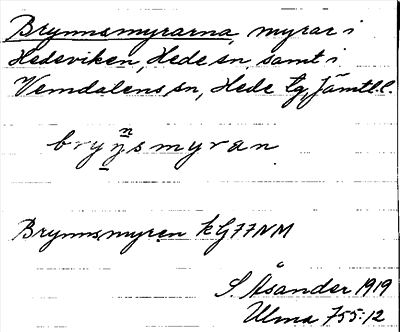 Brynnsmyrarna, myrar i
Hedeviken, Hede sn, samt i
Vemdalens, sn, Hede tg, Jämtl.l.
n
bryn̲smyran
Brynnsmyren k G77NM
S. Åsander 1919
Ulma 755:12